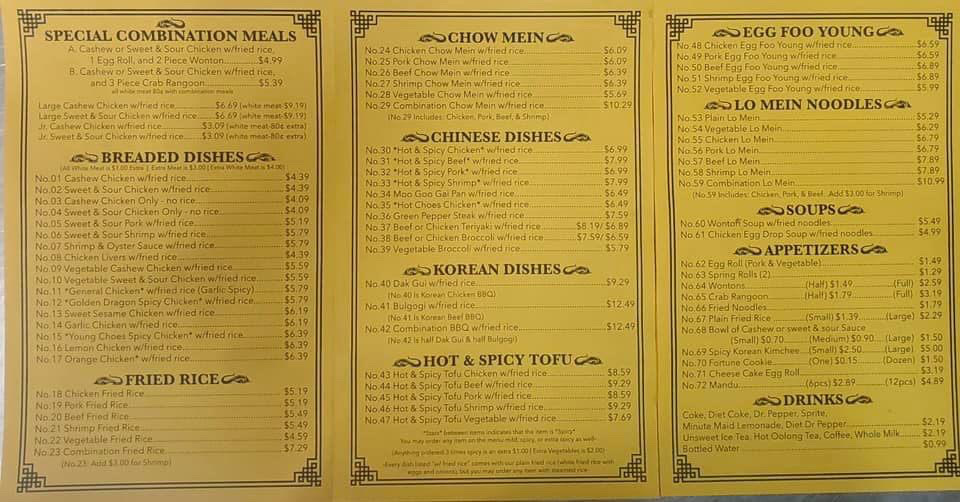 SPECIAL COMBINATION MEALS
A. Cashew or Sweet & Sour Chicken w/fried rice,
1 Egg Roll, and 2 Piece Wonton..........$4.99
B. Cashew or Sweet & Sour Chicken w/fried rice,
and 3 Piece Crab Rangoon..........$5.39
all white meat 80¢ with combination meals
Large Cashew Chicken w/fried rice..........$6.69 (white meat-$9.19)
Large Sweet & Sour Chicken w/fried rice..........$6.69 (white meat-$9.19)
Jr. Cashew Chicken w/fried rice..........$3.09 (white meat-80¢ extra)
Jr. Sweet & Sour Chicken w/fried rice..........$3.09 (white meat-80¢ extra)
BREADED DISHES
(All White Meat is $1.00 Extra | Extra Meat is $3.00 | Extra White Meat is $4.00)
No.01 Cashew Chicken w/fried rice..........$4.39
No.02 Sweet & Sour Chicken w/fried rice..........$4.39
No.03 Cashew Chicken Only - no rice..........$4.09
No.04 Sweet & Sour Chicken Only - no rice..........$4.09
No.05 Sweet & Sour Pork w/fried rice..........$5.19
No.06 Sweet & Sour Shrimp w/fried rice..........$5.79
No.07 Shrimp & Oyster Sauce w/fried rice..........$5.79
No.08 Chicken Livers w/fried rice..........$4.39
No.09 Vegetable Cashew Chicken w/fried rice..........$5.59
No.10 Vegetable Sweet & Sour Chicken w/fried rice..........$5.59
No.11 *General Chicken* w/fried rice (Garlic Spicy)..........$5.79
No.12 *Golden Dragon Spicy Chicken* w/fried rice..........$5.79
No.13 Sweet Sesame Chicken w/fried rice..........$6.19
No.14 Garlic Chicken w/fried rice..........$6.19
No.15 *Young Choes Spicy Chicken* w/fried rice..........$6.39
No.16 Lemon Chicken w/fried rice..........$6.39
No.17 Orange Chicken* w/fried rice..........$6.39
FRIED RICE
No.18 Chicken Fried Rice..........$5.19
No.19 Pork Fried Rice..........$5.19
No.20 Beef Fried Rice..........$5.49
No.21 Shrimp Fried Rice..........$5.49
No.22 Vegetable Fried Rice..........$4.59
No.23 Combination Fried Rice..........$7.29
(No.23: Add $3.00 for Shrimp)
CHOW MEIN
No.24 Chicken Chow Mein w/fried rice..........$6.09
No.25 Pork Chow Mein w/fried rice..........$6.09
No.26 Beef Chow Mein w/fried rice..........$6.39
No.27 Shrimp Chow Mein w/fried rice..........$6.39
No.28 Vegetable Chow Mein w/fried rice..........$5.69
No.29 Combination Chow Mein w/fried rice..........$10.29
(No.29 Includes: Chicken, Pork, Beef, & Shrimp)
CHINESE DISHES
No.30 *Hot & Spicy Chicken* w/fried rice..........$6.99
No.31 *Hot & Spicy Beef* w/fried rice..........$7.99
No.32 *Hot & Spicy Pork* w/fried rice..........$6.99
No.33 *Hot & Spicy Shrimp* w/fried rice..........$7.99
No.34 Moo Goo Gai Pan w/fried rice..........$6.49
No.35 *Hot Choes Chicken* w/fried rice..........$6.49
No.36 Green Pepper Steak w/fried rice..........$7.59
No.37 Beef or Chicken Teriyaki w/fried rice..........$8.19/ $6.89
No.38 Beef or Chicken Broccoli w/fried rice..........$7.59/ $6.59
No.39 Vegetable Broccoli w/fried rice..........$5.79
KOREAN DISHES
No.40 Dak Gui w/fried rice..........$9.29
(No.40 Is Korean Chicken BBQ)
No.41 Bulgogi w/fried rice..........$12.49
(No.41 Is Korean Beef BBQ)
No.42 Combination BBQ w/fried rice..........$12.49
(No.42 Is half Dak Gui & half Bulgogi)
HOT & SPICY TOFU
No.43 Hot & Spicy Tofu Chicken w/fried rice..........$8.59
No.44 Hot & Spicy Tofu Beef w/fried rice..........$9.29
No.45 Hot & Spicy Tofu Pork w/fried rice..........$8.59
No.46 Hot & Spicy Tofu Shrimp w/fried rice..........$9.29
No.47 Hot & Spicy Tofu Vegetable w/fried rice..........$7.69
*Stars* between items indicates that the item is *Spicy*
You may order any item on the menu mild, spicy, or extra spicy as well-
(Anything ordered 3 times spicy is an extra $1.00 | Extra Vegetables is $2.00)
-Every dish listed "w/ fried rice" comes with our plain fried rice (white fried rice with
eggs and onions), but you may order any item with steamed rice-
EGG FOO YOUNG
No.48 Chicken Egg Foo Young w/fried rice..........$6.59
No.49 Pork Egg Foo Young w/fried rice..........$6.59
No.50 Beef Egg Foo Young w/fried rice..........$6.89
No.51 Shrimp Egg Foo Young w/fried rice..........$6.89
No.52 Vegetable Egg Foo Young w/fried rice..........$5.99
LO MEIN NOODLES
No.53 Plain Lo Mein..........$5.29
No.54 Vegetable Lo Mein..........$6.29
No.55 Chicken Lo Mein..........$6.79
No.56 Pork Lo Mein..........$6.79
No.57 Beef Lo Mein..........$7.89
No.58 Shrimp Lo Mein..........$7.89
No.59 Combination Lo Mein..........$10.99
(No.59 Includes: Chicken, Pork, & Beef. Add $3.00 for Shrimp)
SOUPS
No.60 Wonton Soup w/fried noodles..........$5.49
No.61 Chicken Egg Drop Soup w/fried noodles..........$4.99
APPETIZERS
No.62 Egg Roll (Pork & Vegetable)..........$1.49
No.63 Spring Rolls (2)..........$1.29
No.64 Wontons..........(Half) $1.49..........(Full) $2.59
No.65 Crab Rangoon..........(Half) $1.79..........(Full) $3.19
No.66 Fried Noodles..........$1.79
No.67 Plain Fried Rice..........(Small) $1.39..........(Large) $2.29
No.68 Bowl of Cashew or sweet & sour Sauce
(Small) $0.70..........(Medium) $0.90....(Large) $1.50
No.69 Spicy Korean Kimchee....(Small) $2.50..........(Large) $5.00
No.70 Fortune Cookie..........(One) $0.15..........(Dozen) $1.50
No.71 Cheese Cake Egg Roll..........$3.19
No.72 Mandu..........(6pcs) $2.89..........(12pcs) $4.89
DRINKS
Coke, Diet Coke, Dr. Pepper, Sprite,
Minute Maid Lemonade, Diet Dr Pepper..........$2.19
Unsweet Ice Tea, Hot Oolong Tea, Coffee, Whole Milk..........$2.19
Bottled Water..........$0.99